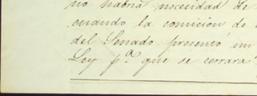 no habría necesidad de
cuando la comición de
del Senado presentó un
Ley p.ª que se cerrara